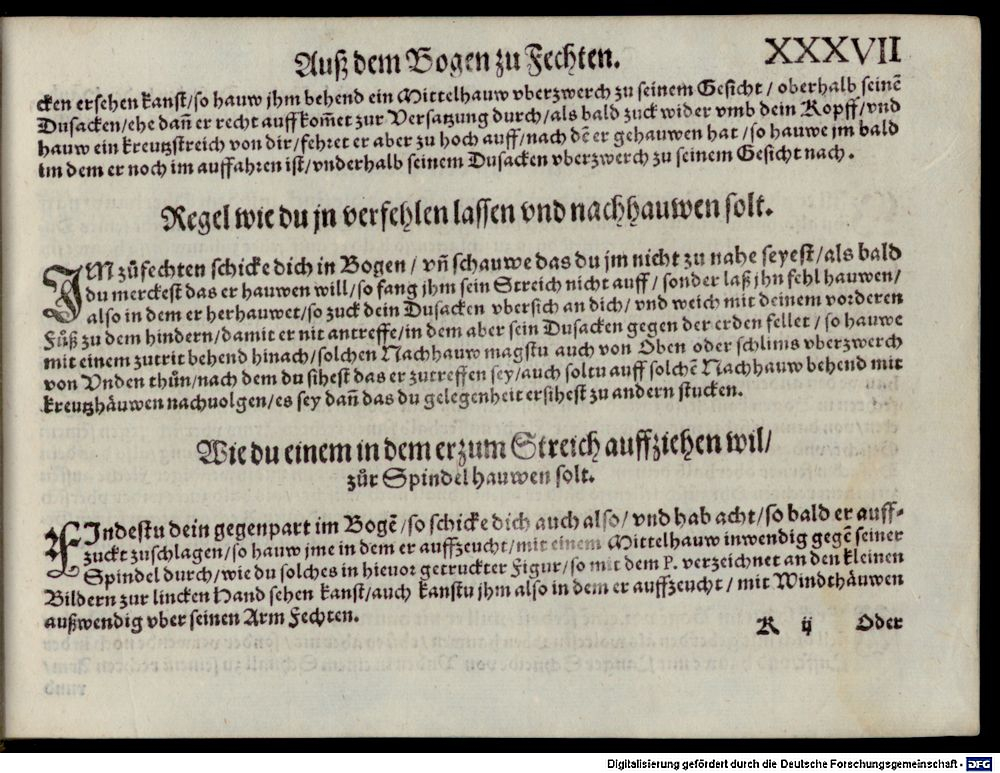 Auß dem Bogen zu Fechten. XXXVII
cken ersehen kanst/so hauw jhm behend ein Mittelhauw vberzwerch zu seinem Gesicht / oberhalb seinẽ
Dusacken/ehe dañ er recht auff kom̃et zur Versatzung durch/als bald zuck wider vmb dein Kopff/vnd
hauw ein kreutzstreich von dir/fehret er aber zu hoch auff/nach dẽ er gehauwen hat /so hauwe jm bald
im dem er noch im auffahren ist/vnderhalb seinem Dusacken vberzwerch zu seinem Gesicht nach.
Regel wie du jn verfehlen lassen vnd nachhauwen solt.
IM zůfechten schicke dich in Bogen / vñ schauwe das du jm nicht zu nahe seyest/als bald
du merckest das er hauwen will/so fang jhm sein Streich nicht auff / sonder laß jhn fehl hauwen/
also in dem er herhauwet/so zuck dein Dusacken vbersich an dich/ vnd weich mit deinem vorderen
Fůß zu dem hindern/damit er nit antreffe/in dem aber sein Dusacken gegen der erden fellet / so hauwe
mit einem zutrit behend hinach/solchen Nachhauw magstu auch von Oben oder schlims vberzwerch
von Vnden thůn/nach dem du sihest das er zutreffen sey/auch soltu auff solchẽ Nachhauw behend mit
kreutzhäuwen nachuolgen/es sey dañ das du gelegenheit ersihest zu andern stucken.
Wie du einem in dem er zum Streich auffziehen wil/
zůr Spindel hauwen solt.
FIndestu dein gegenpart im Bogẽ/so schicke dich auch also/ vnd hab acht/so bald er auff-
zuckt zuschlagen/so hauw jme in dem er auffzeucht/mit einem Mittelhauw inwendig gegẽ seiner
Spindel durch/wie du solches in hieuor getruckter Figur/so mit dem P. verzeichnet an den kleinen
Bildern zur lincken Hand sehen kanst/auch kanstu jhm also in dem er auffzeucht / mit Windthäuwen
außwendig vber seinen Arm Fechten.
K ij Oder
Digitalisierung gefördert durch die Deutsche Forschungsgemeinschaft - DFG